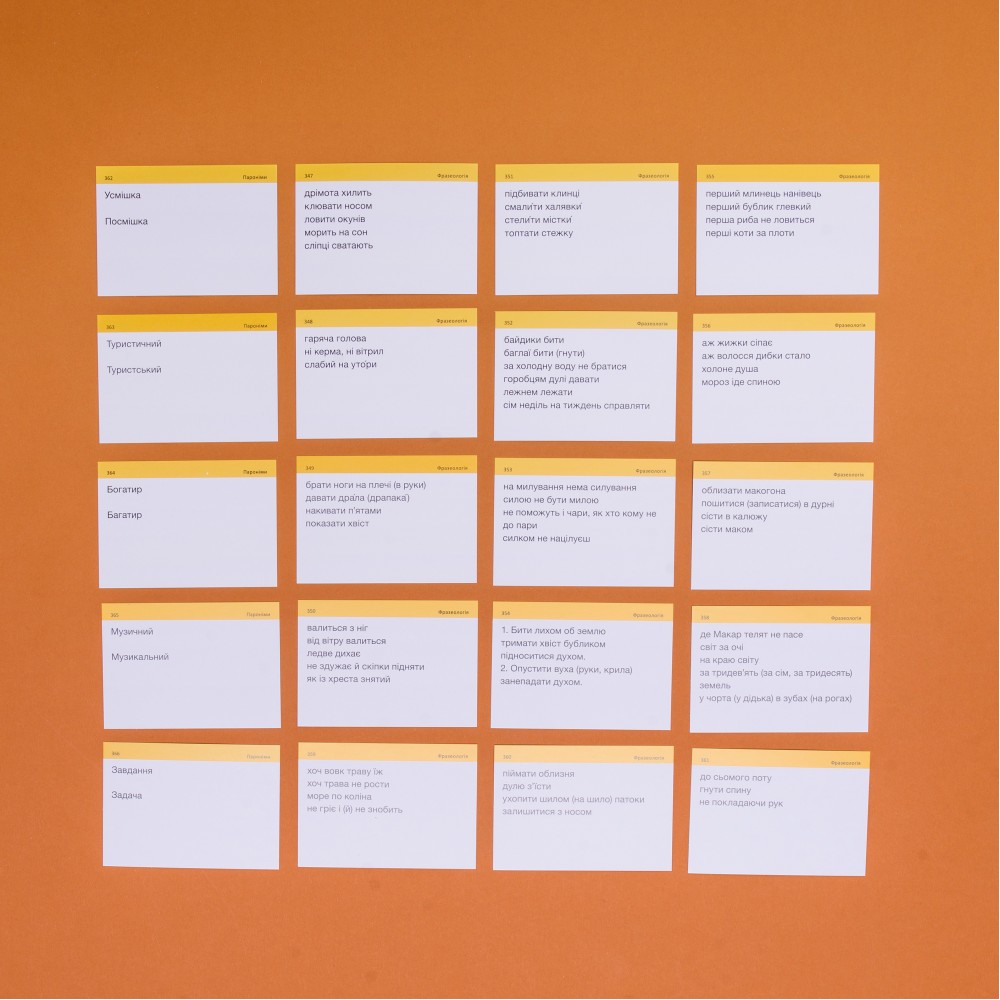 362 Пароніми
Усмішка
Посмішка
347 Фразеологія
дрімота хилить
клювати носом
ловити окунів
морить на сон
сліпці сватають
351 Фразеологія
підбивати клинці
смали́ти халявки́
стели́ти містки́
топтати стежку
355 Фразеологія
перший млинець нанівець
перший бублик глевкий
перша риба не ловиться
перші коти за плоти
363 Пароніми
Туристичний
Туристський
348 Фразеологія
гаряча голова
ні керма, ні вітрил
слабий на уто́ри
352 Фразеологія
байдики бити
баглаї бити (гнути)
за холодну воду не братися
горобцям дулі давати
лежнем лежати
сім неділь на тиждень справляти
356 Фразеологія
аж жижки сіпає
аж волосся дибки стало
холоне душа
мороз іде спиною
364 Пароніми
Богатир
Багатир
349 Фразеологія
брати ноги на плечі (в руки)
давати дра́ла (драпака́)
накивати п’ятами
показати хвіст
353 Фразеологія
на милування нема силування
силою не бути милою
не поможуть і чари, як хто кому не
до пари
силком не націлуєш
357 Фразеологія
облизати макогона
пошитися (записатися) в дурні
сісти в калюжу
сісти маком
365 Пароніми
Музичний
Музикальний
350 Фразеологія
валиться з ніг
від вітру валиться
ледве дихає
не здужає й скіпки підняти
як із хреста знятий
354 Фразеологія
1. Бити лихом об землю
тримати хвіст бубликом
підноситися духом.
2. Опустити вуха (руки, крила)
занепадати духом.
358 Фразеологія
де Макар телят не пасе
світ за очі
на краю світу
за тридев’ять (за сім, за тридесять)
земель
у чорта (у дідька) в зубах (на рогах)
366 Пароніми
Завдання
Задача
359 Фразеологія
хоч вовк траву їж
хоч трава не рости
море по коліна
не гріє і (й) не знобить
360 Фразеологія
піймати облизня
дулю з’їсти
ухопити шилом (на шило) патоки
залишитися з носом
361 Фразеологія
до сьомого поту
гнути спину
не покладаючи рук